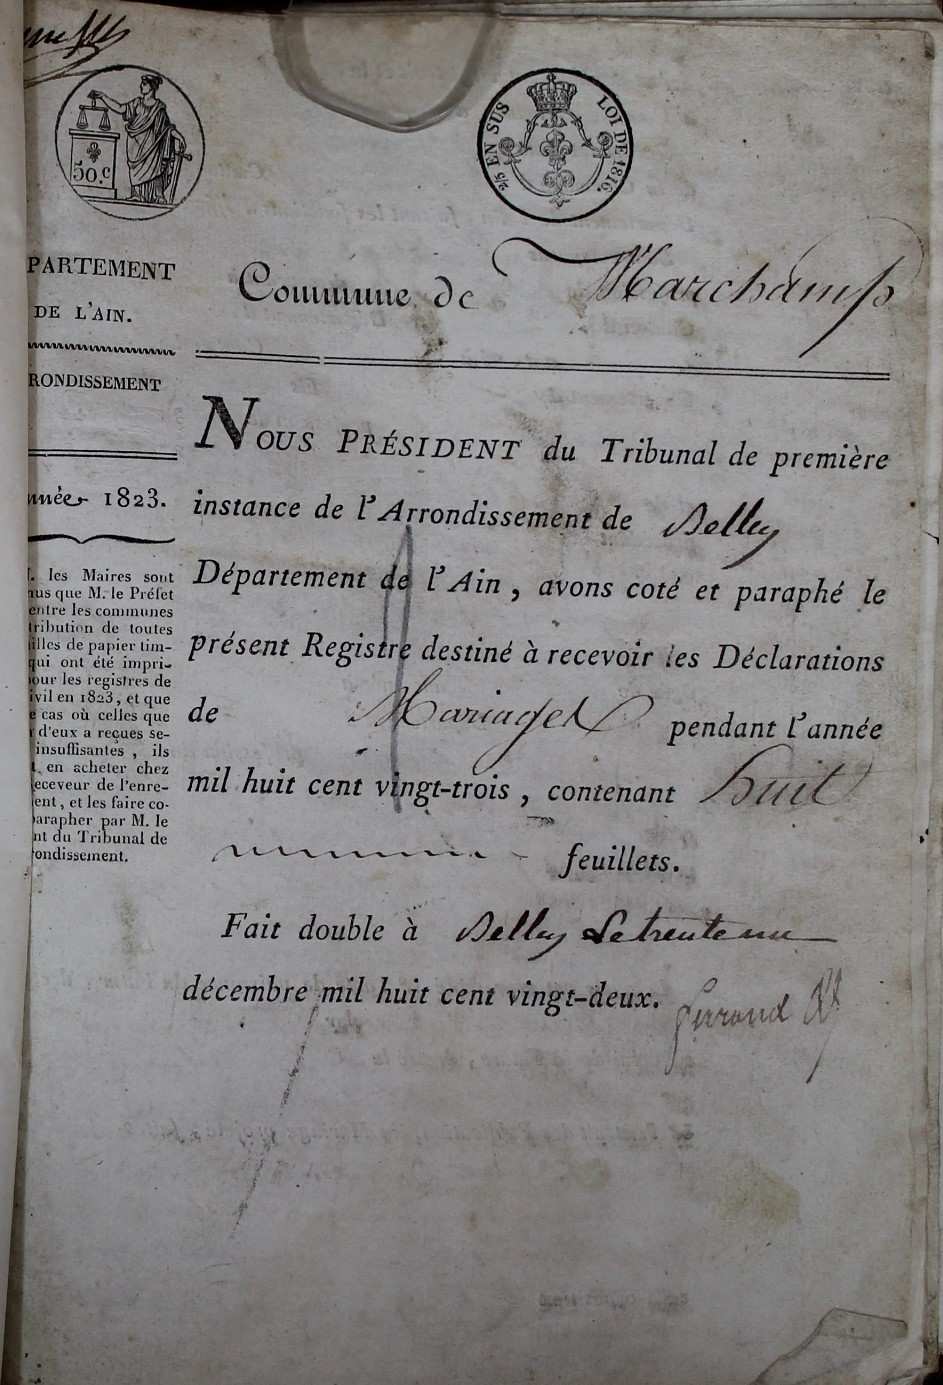 50.c
2/5 EN SUS LOI DE 1816.
PARTEMENT
DE L'AIN.
RONDISSEMENT
nnée 1823.
les Maires sont
us que M. le Préfet
entre les communes
tribution de toutes
illes de papier tim-
qui ont été impri-
our les registres de
ivil en 1823, et que
e cas où celles que
d'eux a reçues se-
insuffisantes, ils
en acheter chez
eceveur de l'enre-
ent, et les faire co-
parapher par M. le
nt du Tribunal de
rondissement.
Commune de Marchamp
NOUS PRÉSIDENT du Tribunal de première
instance de l'Arrondissement de Belley
Département de l'Ain, avons coté et paraphé le
présent Registre destiné à recevoir les Déclarations
de Mariages pendant l'année
mil huit cent vingt-trois, contenant huit
feuillets.
Fait double à Belley Le trente un
décembre mil huit cent vingt-deux.